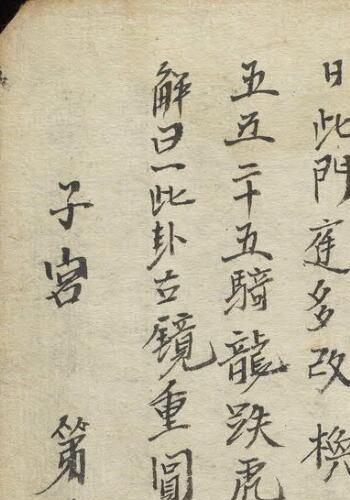 日此門庭多改換
五五二十五騎龍跌虎
解曰一此卦古鏡重圓
子宮 第